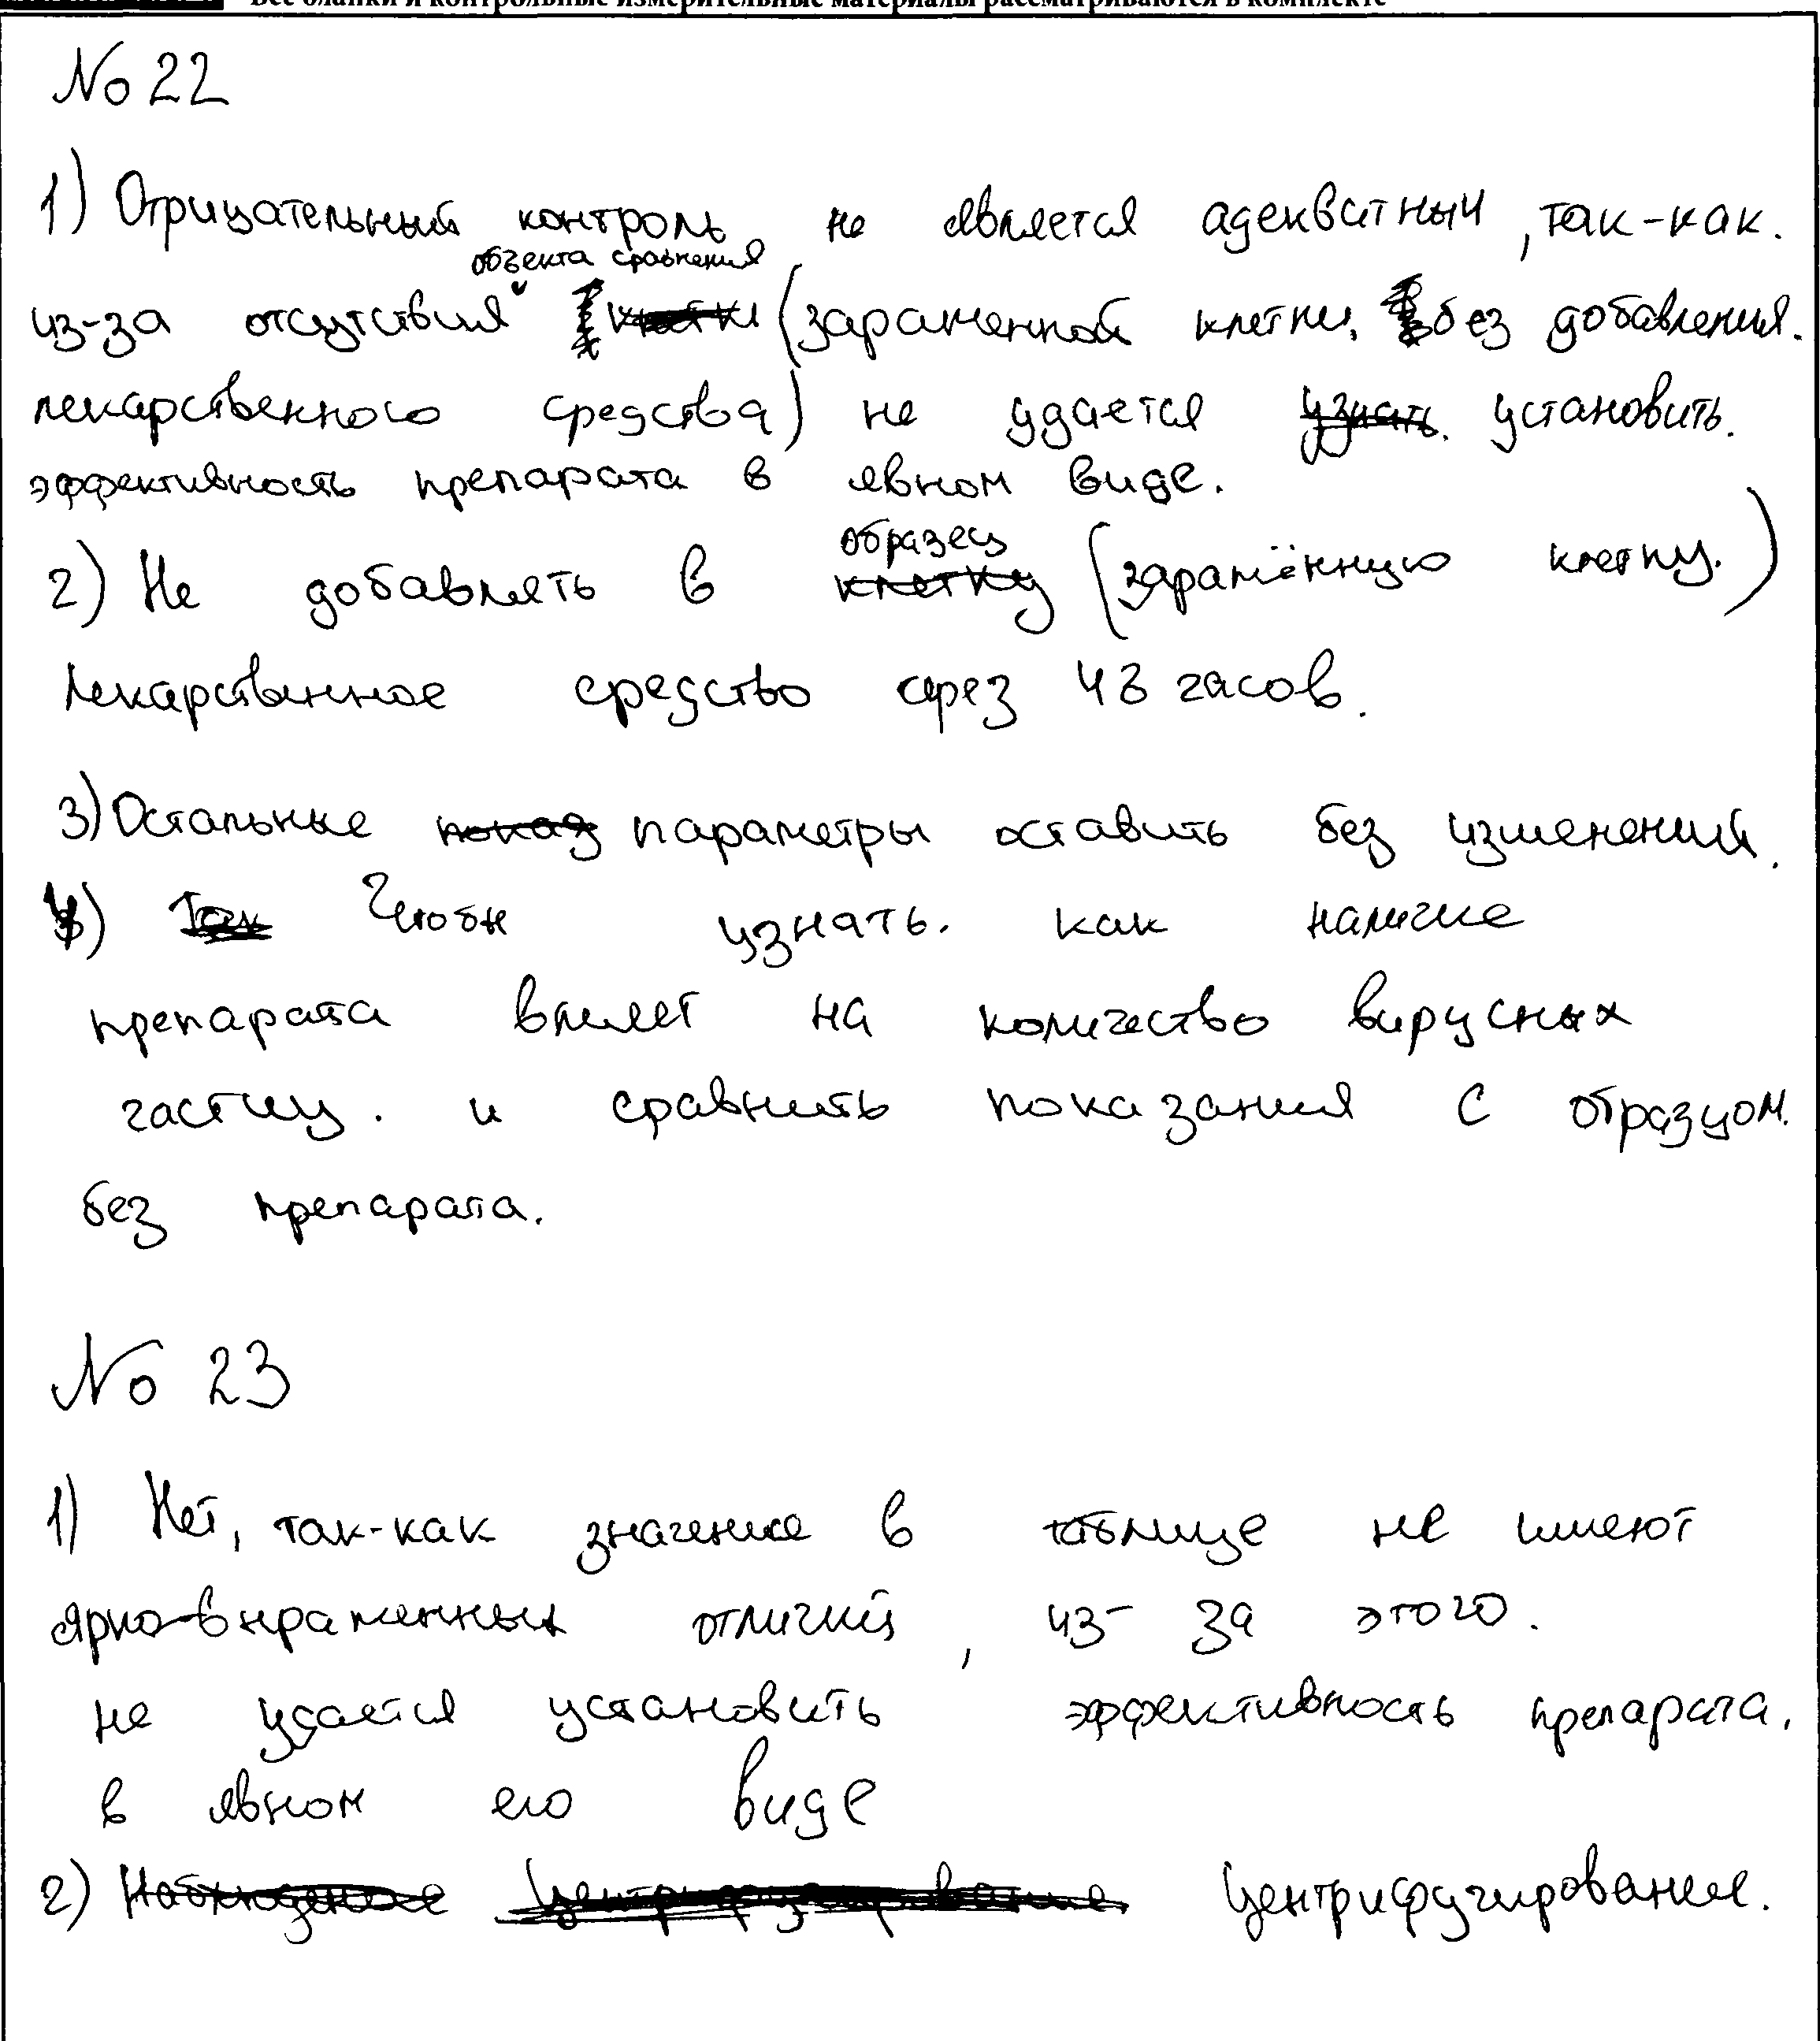 Все бланки и контрольные измерительные материалы рассматриваются в комплекте
№ 22
1) Отрицательный контроль не является адекватным, так-как.
объекта сравнения
из-за отсутствия (зараженной клетки, без добавления.
лекарственного средства) не удается узнать. установить.
эффективность препарата в явном виде.
образец
2) Не добавлять в клетку (заражённую клетку.)
лекарственное средство через 48 часов.
3) Остальные показ параметры оставить без изменений.
4) Так Чтобы узнать. как наличие
препарата влияет на количество вирусных
частиц. и сравнить показания с образцом.
без препарата.
№ 23
1) Нет, так-как значение в таблице не имеют
ярко-выраженных отличий, из-за этого.
не удается установить эффективность препарата.
в явном его виде
2) Наблюдение Центрифугирование Центрифугирование.